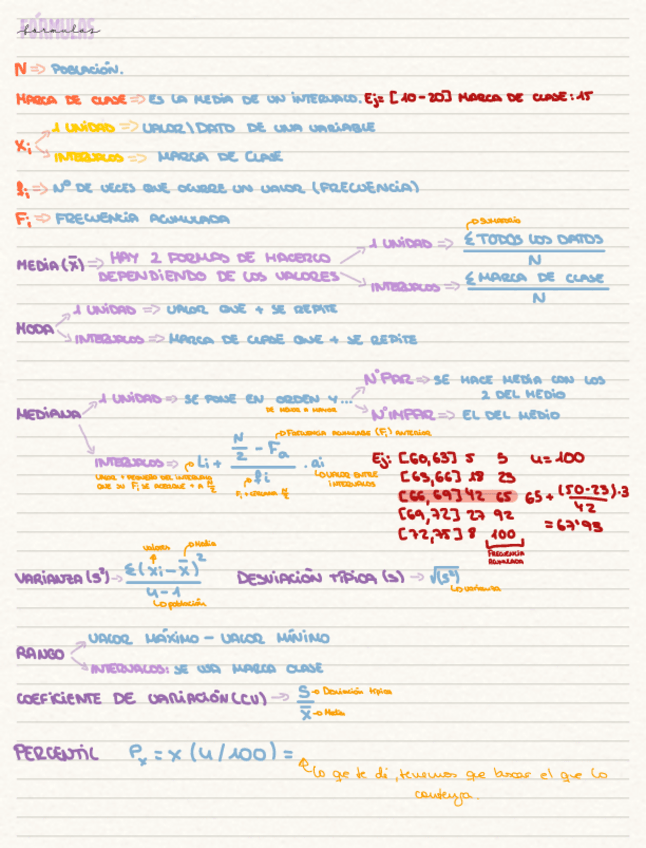 FÓRMULAS
fórmulas
N => POBLACIÓN.
MARCA DE CLASE => ES LA MEDIA DE UN INTERVALO. Ej= [10-20] MARCA DE CLASE: 15
Xi
1 UNIDAD => VALOR\DATO DE UNA VARIABLE
INTERVALOS => MARCA DE CLASE
fi => Nº DE VECES QUE OCURRE UN VALOR (FRECUENCIA)
Fi => FRECUENCIA ACUMULADA
MEDIA (x̄) => HAY 2 FORMAS DE HACERLO DEPENDIENDO DE LOS VALORES
1 UNIDAD => Σ TODOS LOS DATOS / N
Sumatorio
INTERVALOS => Σ MARCA DE CLASE / N
MODA
1 UNIDAD => VALOR QUE + SE REPITE
INTERVALOS => MARCA DE CLASE QUE + SE REPITE
MEDIANA
1 UNIDAD => SE PONE EN ORDEN Y...
DE MENOR A MAYOR
Nº PAR => SE HACE MEDIA CON LOS 2 DEL MEDIO
Nº IMPAR => EL DEL MEDIO
INTERVALOS => Li + (N/2 - Fa) / fi . ai
FRECUENCIA ACUMULADA (Fi) ANTERIOR
VALOR + PEQUEÑO DEL INTERVALO QUE SU Fi SE ACERQUE + A N/2
VALOR ENTRE INTERVALOS
Ej: [60,63] 5 5 n=100
[63,66] 18 23
[66,69] 42 65 65 + (50-23)·3 / 42
[69,72] 27 92 = 67'93
[72,75] 8 100
FRECUENCIA ACUMULADA
VARIANZA (s²) -> Σ(xi - x̄)² / n-1
valores
Media
población
DESVIACIÓN TÍPICA (s) -> √(s²)
varianza
RANGO
VALOR MÁXIMO - VALOR MÍNIMO
INTERVALOS: SE USA MARCA CLASE
COEFICIENTE DE VARIACIÓN (CV) -> S / x̄
Desviación típica
Media
PERCENTIL Px = x (n/100) =
lo qe te di, tenemos que buscar el que lo
contenga.